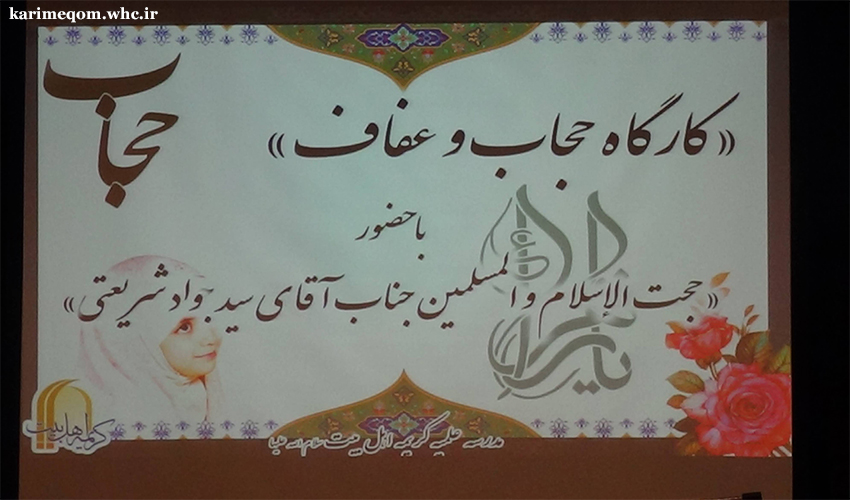 karimeqom.whc.ir
حجاب
«کارگاه حجاب و عفاف»
با حضور
«حجت الإسلام و المسلمین جناب آقای سید جواد شریعتی»
یا زهرا
کریمه اهل بیت
مدرسه علمیه کریمه اهل بیت سلام الله علیها